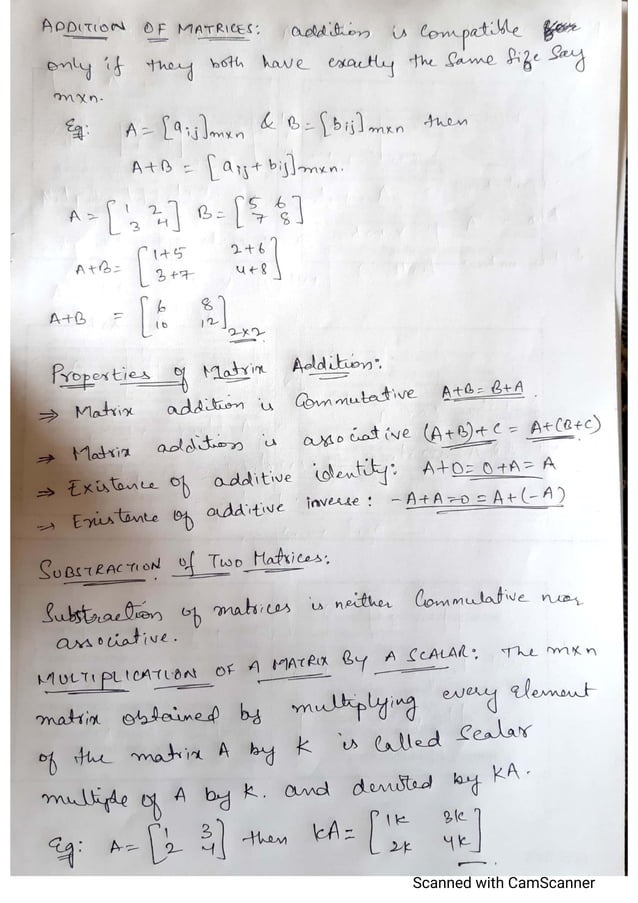 ADDITION OF MATRICES: addition is compatible
only if they both have exactly the same size say
mxn.
Eg: A = [aij]mxn & B = [bij]mxn then
A+B = [aij + bij]mxn.
A = [1 2 3 4] B = [5 6 7 8]
A+B = [1+5 2+6 3+7 4+8]
A+B = [6 8 10 12]2x2
Properties of Matrix Addition:
⇒ Matrix addition is Commutative A+B = B+A.
⇒ Matrix addition is associative (A+B)+C = A+(B+C)
⇒ Existence of additive identity: A+0=0+A=A
⇒ Existence of additive inverse: -A+A=0=A+(-A)
SUBSTRACTION of TWO Matrices:
Substraction of matrices is neither Commulative nor
associative.
MULTIPLICATION OF A MATRIX BY A SCALAR: The mxn
matrix obtained by multiplying every element
of the matrix A by K is called Scalar
multiple of A by K. and denoted by KA.
Eg: A = [1 3 2 4] then KA = [1K 3K 2K 4K]
Scanned with CamScanner